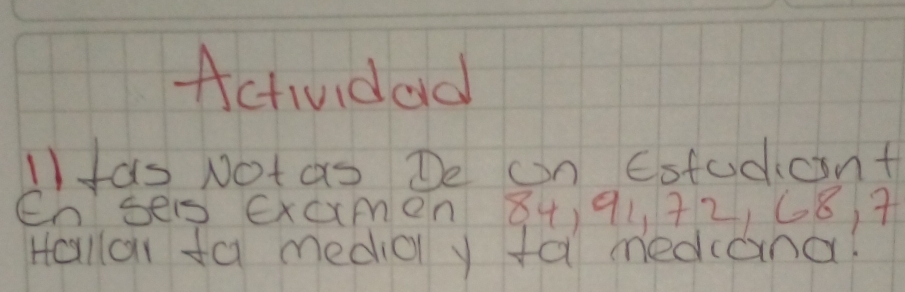 Actividad
1) las Notas De un Estudiant
En seis Examen 84, 91, 72, 68, 7
Hallar la media y la mediana.